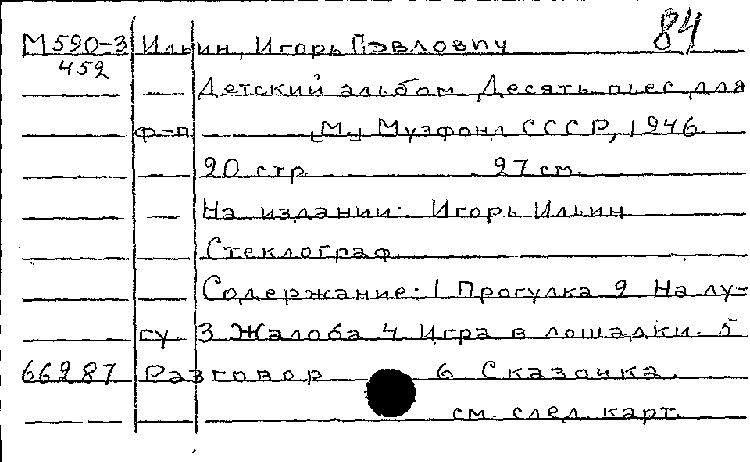 84
М 590-3 Ильин, Игорь Павлович
452
Детский альбом Десять пьес для
ф-п [М] Музфонд СССР, 1946.
20 стр 27 см.
На издании: Игорь Ильин
Стеклограф
Содержание: 1 Прогулка 2 На лу-
гу 3 Жалоба 4 Игра в лошадки. 5
66287 Разговор 6 Сказочка.
см. след. карт.